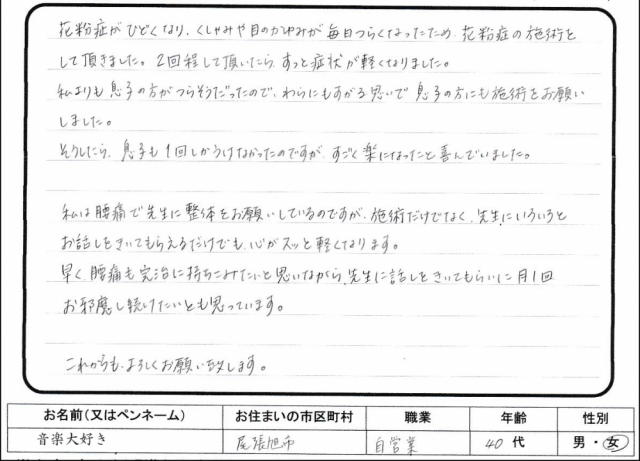 花粉症がひどくなり、くしゃみや目のかゆみが毎日つらくなったため、花粉症の施術を
して頂きました。2回程して頂いたら、すっと症状が軽くなりました。
私よりも息子の方がつらそうだったので、わらにもすがる思いで息子の方にも施術をお願い
しました。
そうしたら、息子も1回しかうけなかったのですが、すごく楽になったと喜んでいました。
私は腰痛で先生に整体をお願いしているのですが、施術だけでなく、先生にいろいろと
お話しをきいてもらえるだけでも、心がスッと軽くなります。
早く腰痛も完治に持ちこみたいと思いながら、先生に話しをきいてもらいに月1回
お邪魔し続けたいとも思っています。
これからも、よろしくお願い致します。
お名前(又はペンネーム) お住まいの市区町村 職業 年齢 性別
音楽大好き 尾張旭市 自営業 40代 男・女